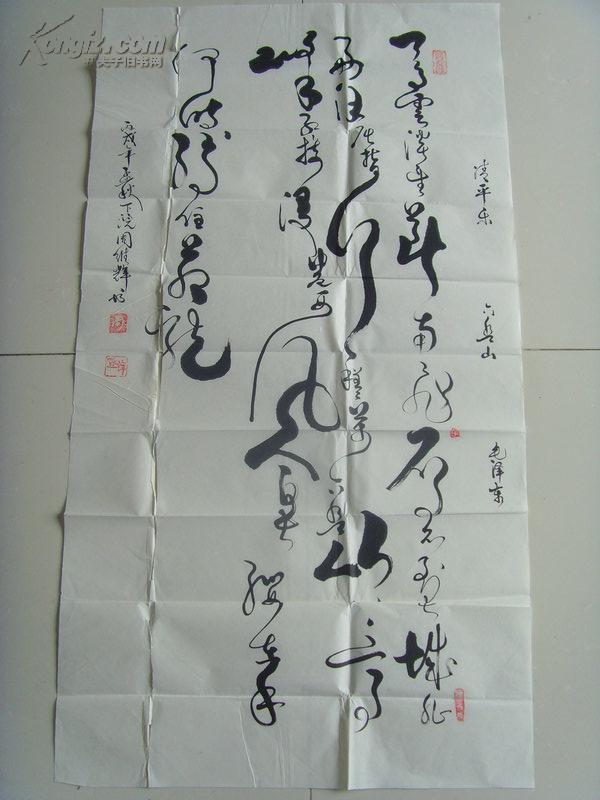 Kongfz.com
孔夫子旧书网
清平乐
六盘山
毛泽东
天高雲淡望断南飞雁不到长城非
好汉屈指行程二萬六盘山上高
峰漫卷西风今日长缨在手
何时缚住苍龙
丙戌年孟秋下浣周维辉书